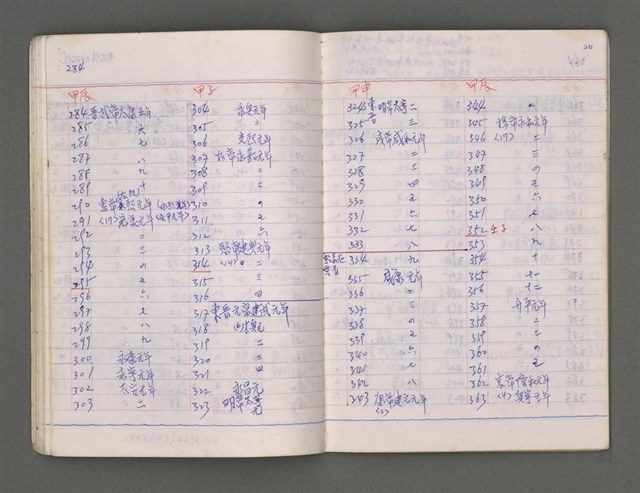 284
甲辰
284 晉武帝太康五年
285 六
286 七
287 八
288 九
289 十
290
291 元康元年
292 二
293 三
294 の
295 五
296 六
297 七
298 八
299 九
300 永康元年
301 永寧元年
302 太安元年
303 二
甲子
304 永興元年
305 〃
306 光熙元年
307 懷帝永嘉元年
308 二
309 三
310 の
311 五
312 六
313 愍帝建興元年
314 二
315 三
316 四
317 東晉元帝建武元年
318
319 二
320 三
321 四
322 永昌元
323 明帝太寧元
甲申
324 東晉 明帝太寧二
325 三
326 成帝咸和元年
327 二
328 三
329 四
330 五
331 六
332 七
333 八
334 九
335 咸康元年
336 二
337 三
338 の
339 五
340 六
341 七
342 八
343 康帝建元元年
(2)
甲辰
344 〃
345 穆帝永和元年
346 二
347 三
348 の
349 五
350 六
351 七
352 壬子 八
353 九
354 十
355 十一
356 十二
357 升平元年
358 二
359 三
360 の
361 五
362 哀帝隆和元年
363 興寧元年